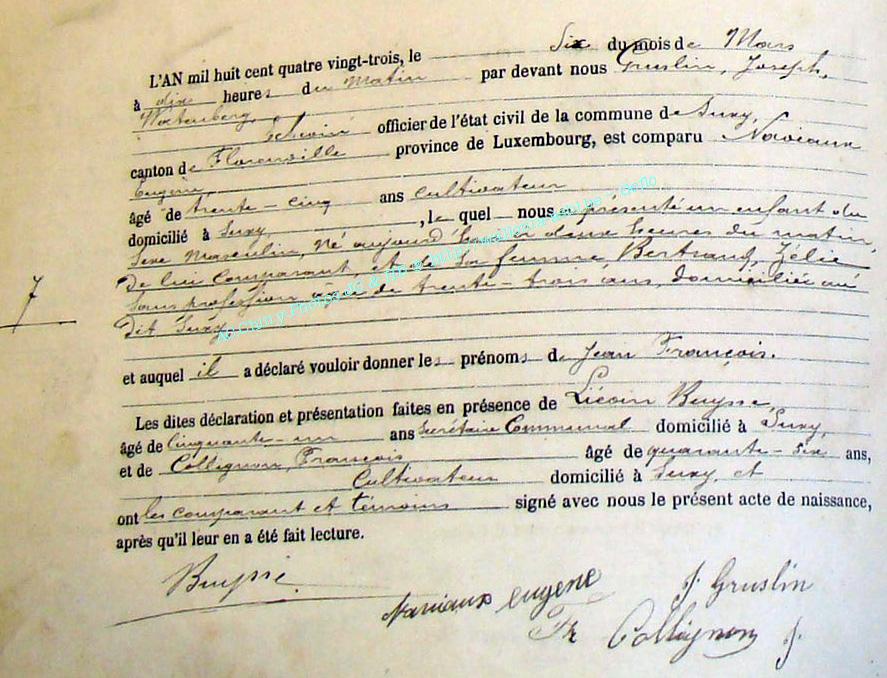 L'AN mil huit cent quatre vingt-trois, le Six du mois de Mars
à dix heures du Matin par devant nous Gruslin, Joseph,
Echevin officier de l'état civil de la commune de Suxy,
canton de Florenville province de Luxembourg, est comparu Naviaux
Eugène,
âgé de trente-cinq ans cultivateur
domicilié à Suxy, , le quel nous a présenté un enfant du
Sexe Masculin, Né aujourd'hui à deux heures du matin,
De lui comparant, et de Sa femme Bertrand, Zélie
Sans profession âgée de trente-trois ans, domiciliée au
dit Suxy
7
et auquel il a déclaré vouloir donner les prénoms de Jean François.
Les dites déclaration et présentation faites en présence de Buysse,
âgé de Cinquante-un ans Secrétaire Communal domicilié à Suxy,
et de Collignon, François âgé de quarante-six ans,
Cultivateur domicilié à Suxy, et
ont les comparant et témoins signé avec nous le présent acte de naissance,
après qu'il leur en a été fait lecture.
Buysse
Naviaux eugene J. Gruslin
Fr Collignon J.